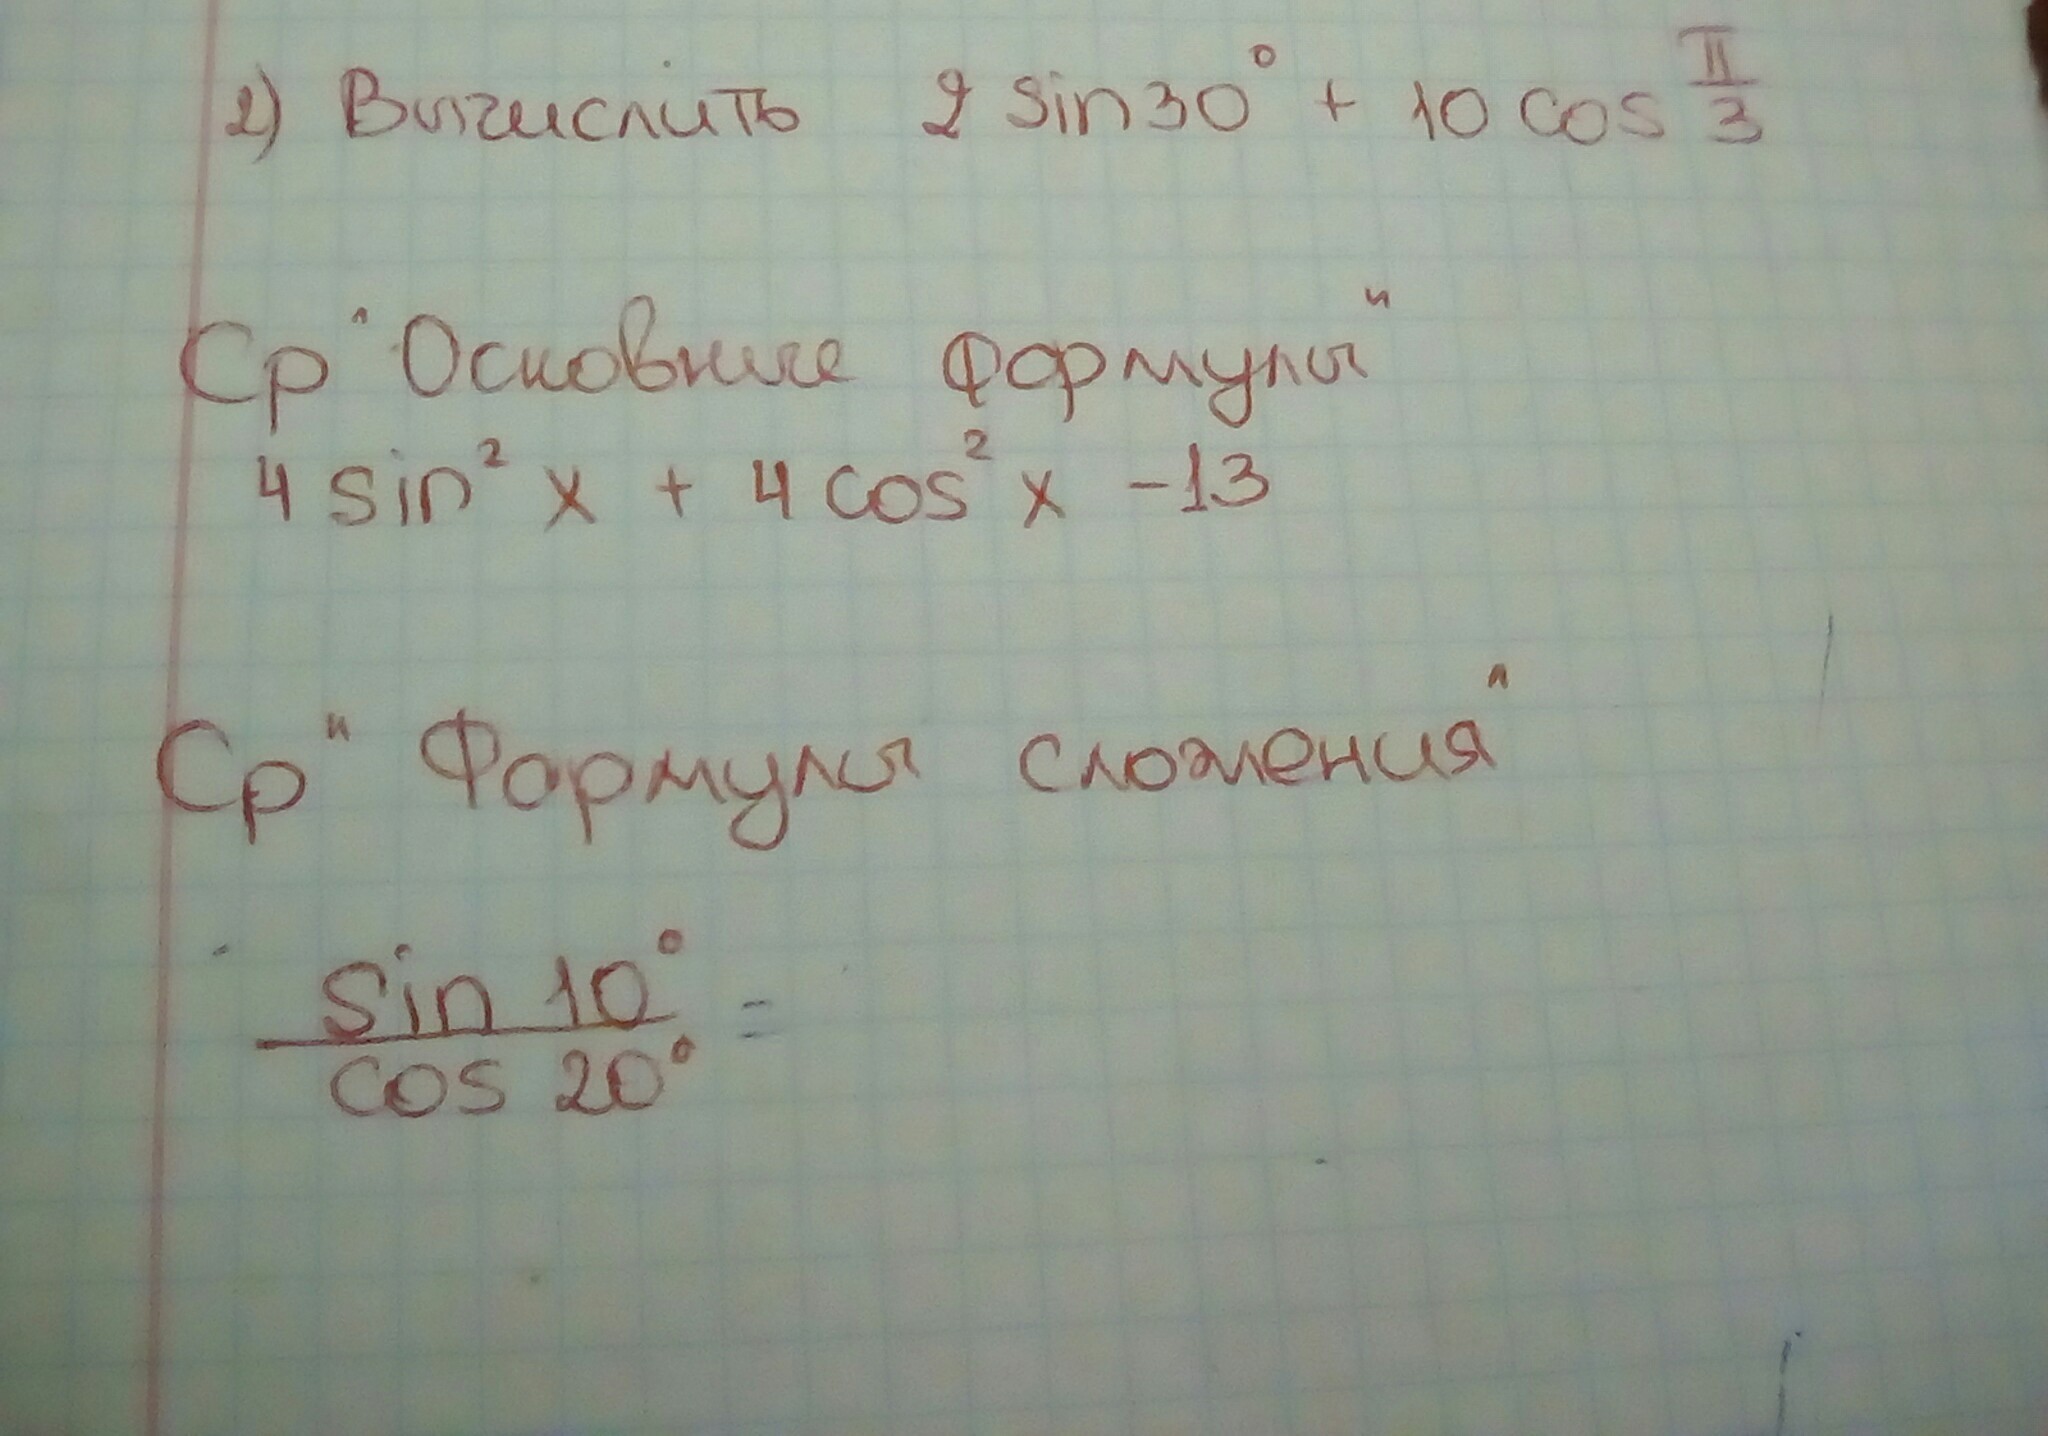 2) Вычислить 2 sin 30° + 10 cos π/3
Ср "Основные формулы"
4 sin² x + 4 cos² x - 13
Ср "Формулы сложения"
sin 10°
cos 20° =